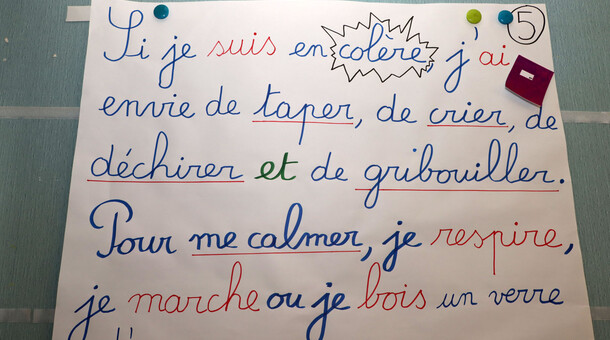 5
Si je suis en colère, j'ai
envie de taper, de crier, de
déchirer et de gribouiller.
Pour me calmer, je respire,
je marche ou je bois un verre